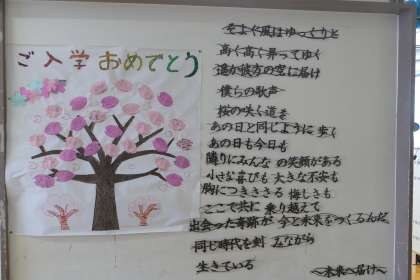 ご入学おめでとう
そよぐ風はゆっくりと
高く高く昇ってゆく
遥か彼方の空に届け
僕らの歌声
桜の咲く道を
あの日と同じように 歩く
あの日も今日も
隣りにみんなの笑顔がある
小さな喜びも 大きな不安も
胸につきささる 悔しさも
ここで共に 乗り越えて
出会った奇跡が 今と未来をつくるんだ
同じ時代を刻みながら
生きている
〜未来へ届け〜